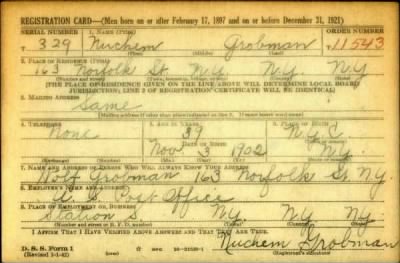 REGISTRATION CARD—(Men born on or after February 17, 1897 and on or before December 31, 1921)
SERIAL NUMBER 1. NAME (Print) ORDER NUMBER
T 329 Nuchem Grobman 11543
(First) (Middle) (Last)
2. PLACE OF RESIDENCE (Print)
163 Norfolk St N.Y. N.Y. N.Y
(Number and street) (Town, township, village, or city) (County) (State)
[THE PLACE OF RESIDENCE GIVEN ON THE LINE ABOVE WILL DETERMINE LOCAL BOARD
JURISDICTION; LINE 2 OF REGISTRATION CERTIFICATE WILL BE IDENTICAL]
3. MAILING ADDRESS
Same
[Mailing address if other than place indicated on line 2. If same insert word same]
4. TELEPHONE 5. AGE IN YEARS 6. PLACE OF BIRTH
None 39 N.Y.C.
DATE OF BIRTH
Nov 3 1902 N.Y.
(Exchange) (Number) (Mo.) (Day) (Yr.) (State or country)
7. NAME AND ADDRESS OF PERSON WHO WILL ALWAYS KNOW YOUR ADDRESS
Grobman 163 Norfolk St. N.Y.
8. EMPLOYER'S NAME AND ADDRESS
U. S. Post Office
9. PLACE OF EMPLOYMENT OR BUSINESS
Station S. N.Y. N.Y. N.Y.
(Number and street or R. F. D. number) (Town) (County) (State)
I AFFIRM THAT I HAVE VERIFIED ABOVE ANSWERS AND THAT THEY ARE TRUE.
D. S. S. Form 1
(Revised 1-1-42) (over) Nuchem Grobman
(Registrant's signature)